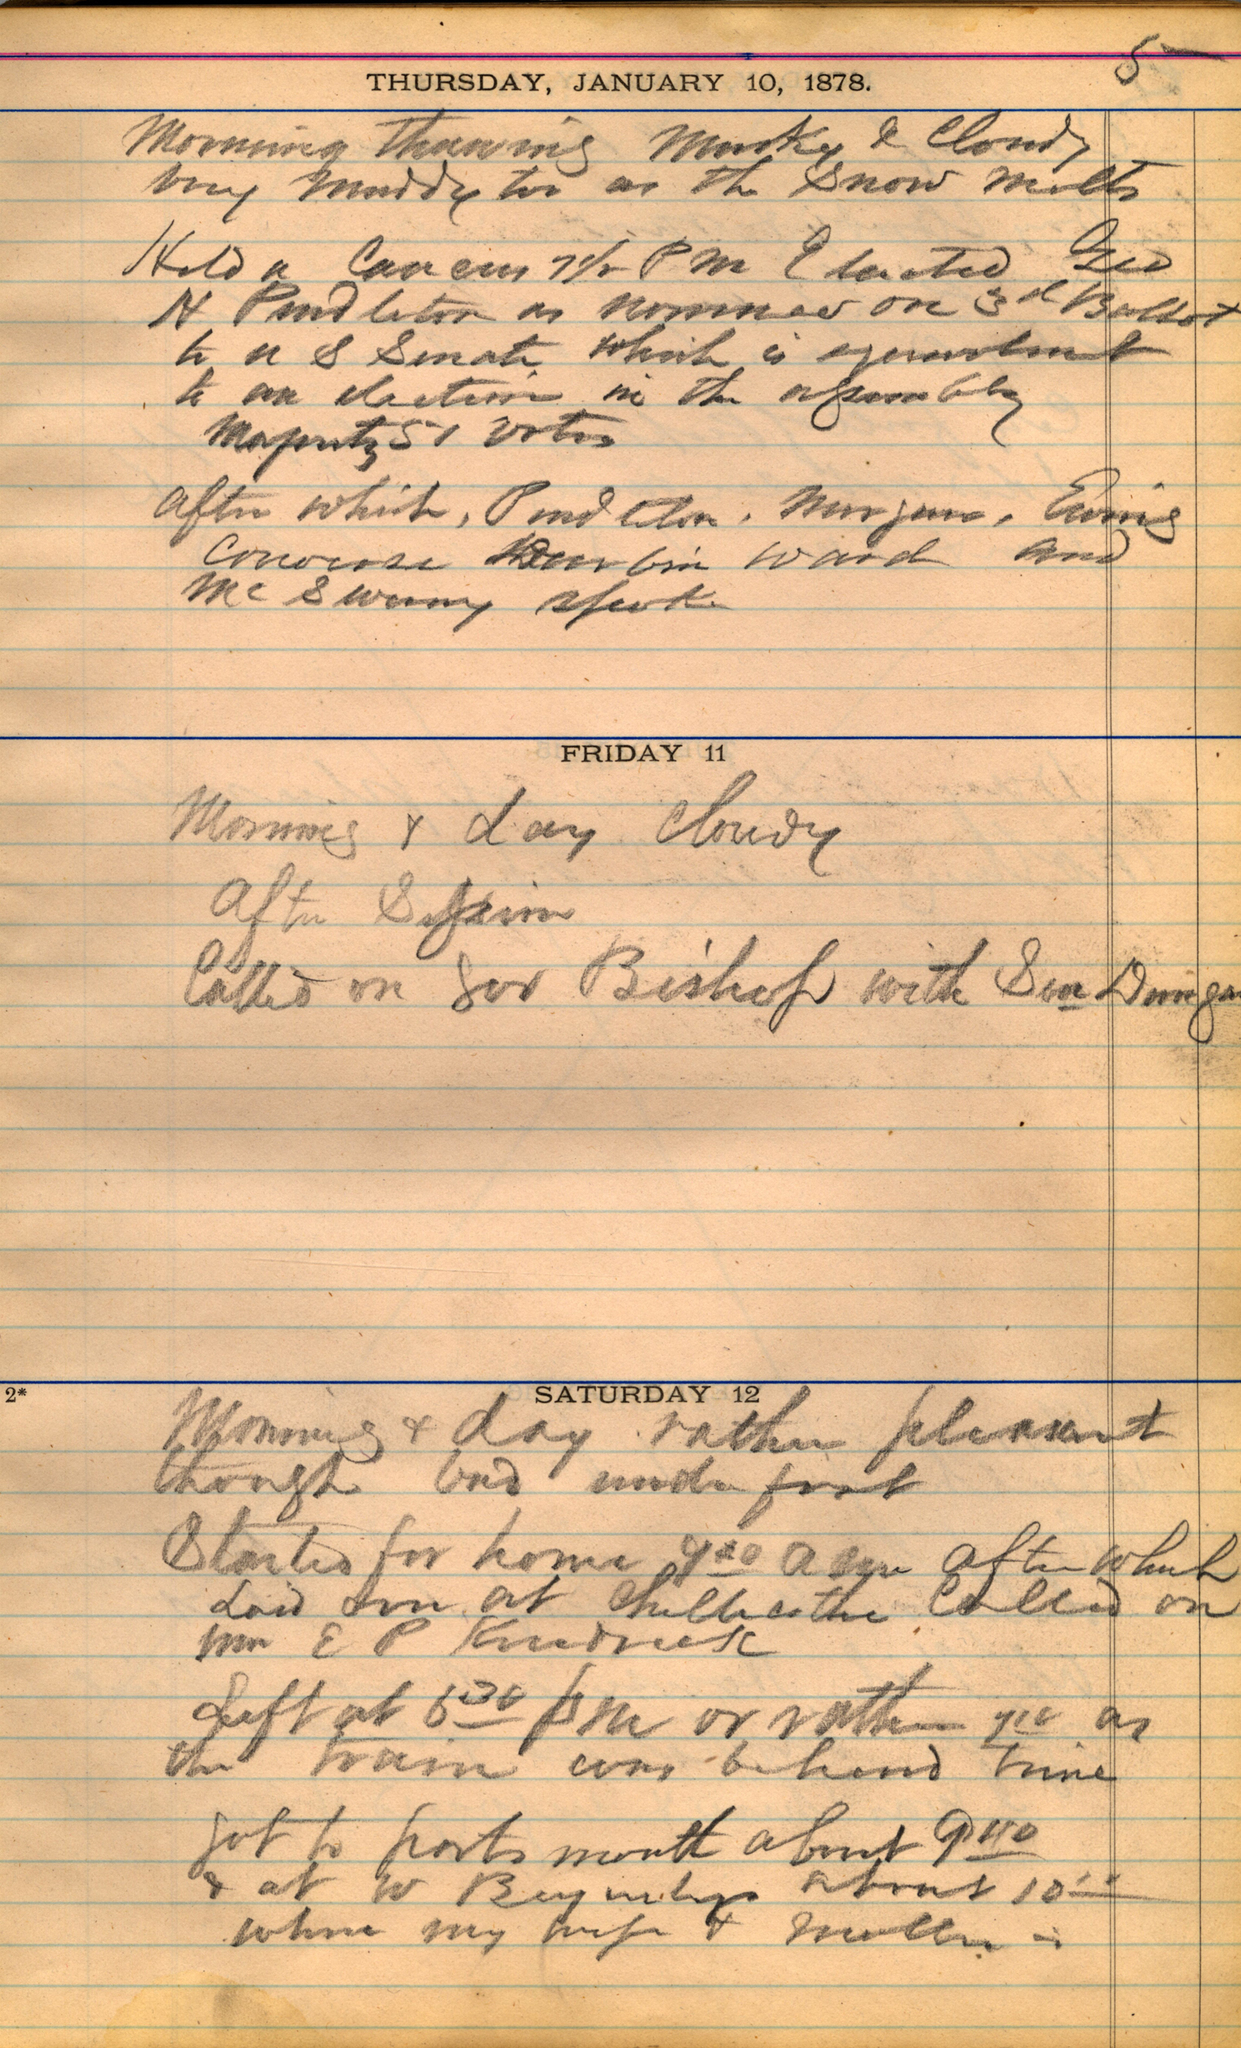 5
THURSDAY, JANUARY 10, 1878.
Morning thawing Murky & Cloudy
very muddy too as the Snow melts
Held a Caucus 7½ P M Elected Geo
H Pendleton as nominee on 3rd Ballot
to U S Senate which is equivalent
to an election in the assembly
Majority 51 votes
After which, Pendleton, Morgan, Ewing
Converse Durbin Ward and
McSweeny spoke
FRIDAY 11
Morning & day cloudy
After Session
Called on Gov Bishop with Sen Dungan
2*
SATURDAY 12
Morning & day rather pleasant
though bad under foot
Started for home a m after which
Laid over at Chillicothe Called on
Mr E P Kendrick
Left at 6 30 P M or rather 7 10 as
the train was behind time
got to Portsmouth about 9
& at W about 10
where my wife & Mollie is